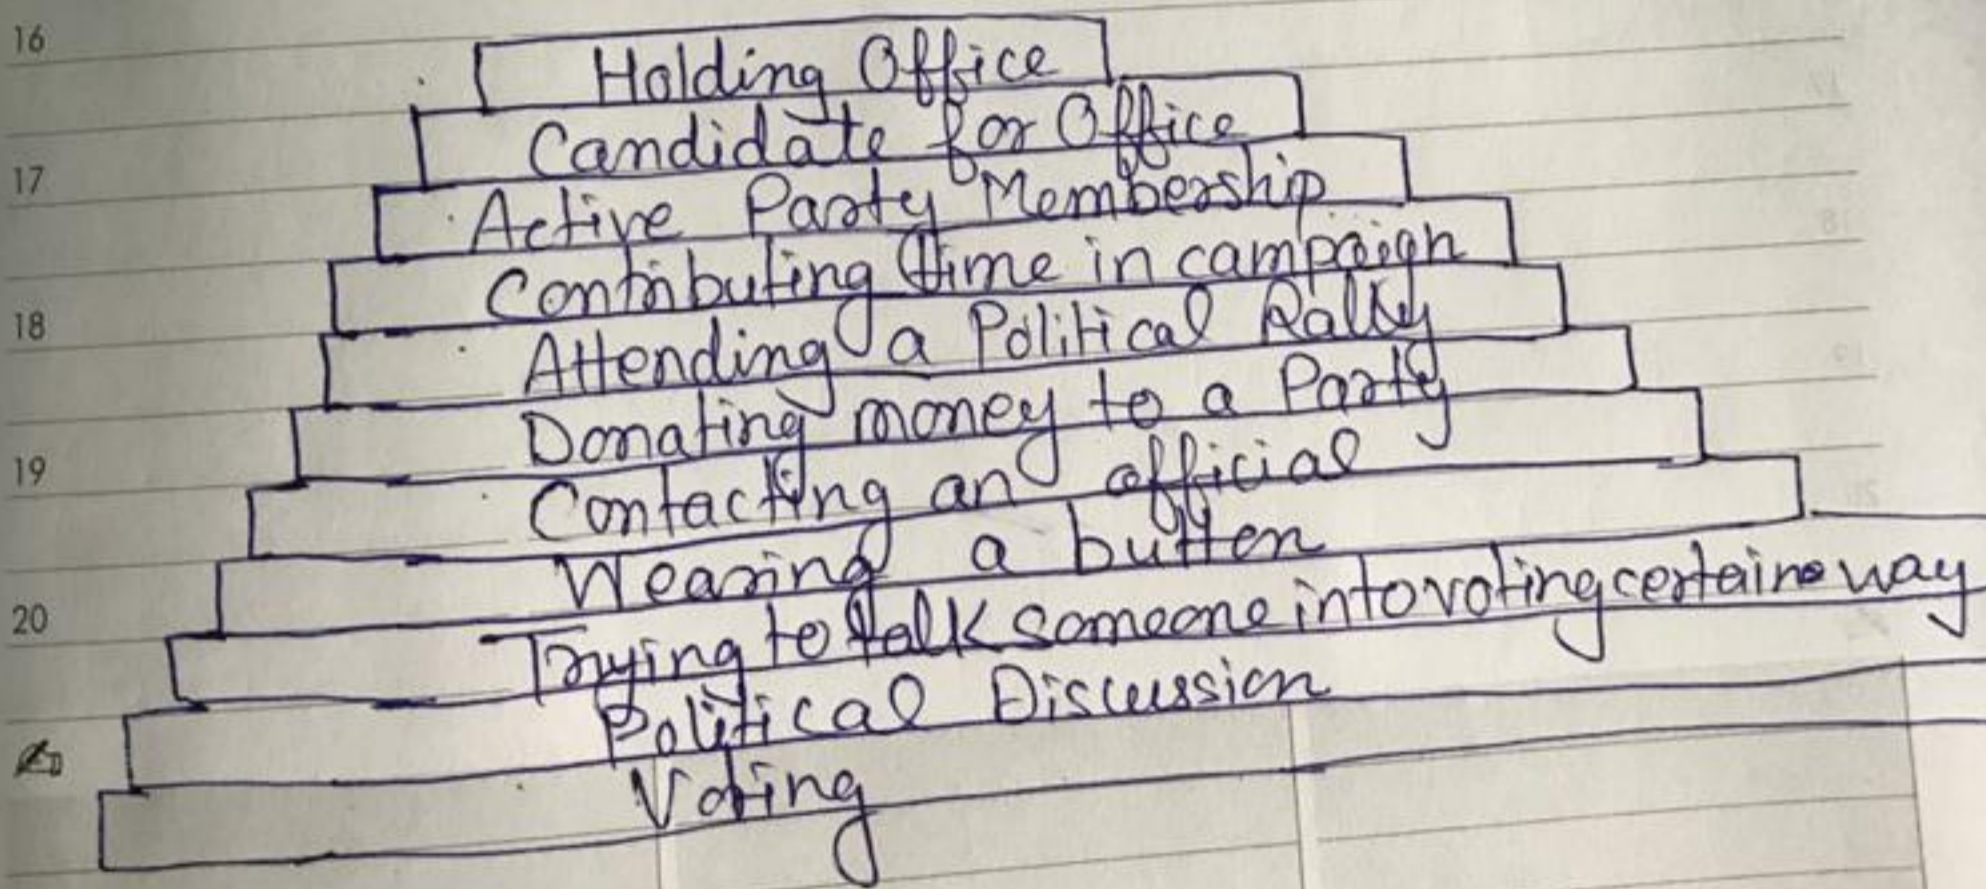 16
Holding Office
Candidate for Office
17
Active Party Membership
Contributing time in campaign
18
Attending a Political Rally
Donating money to a Party
19
Contacting an official
Wearing a button
20
Trying to talk someone into voting certaine way
Political Discussion
Voting